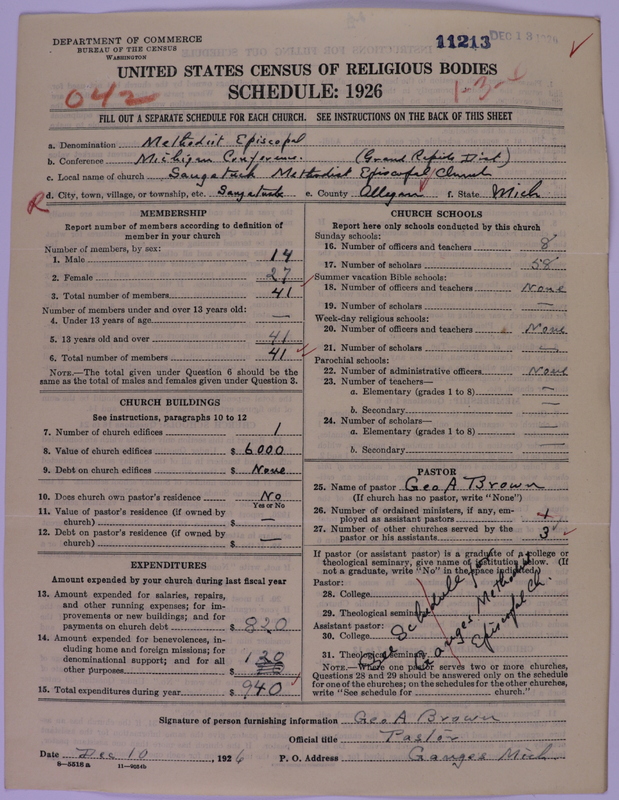 DEPARTMENT OF COMMERCE
BUREAU OF THE CENSUS
WASHINGTON
11213
DEC 13 1926
UNITED STATES CENSUS OF RELIGIOUS BODIES
SCHEDULE: 1926
042
1-3-1
FILL OUT A SEPARATE SCHEDULE FOR EACH CHURCH. SEE INSTRUCTIONS ON THE BACK OF THIS SHEET
a. Denomination Methodist Episcopal
b. Conference Michigan Conference. (Grand Rapids Dist)
c. Local name of church Saugatuck Methodist Episcopal Church
R
d. City, town, village, or township, etc. Saugatuck e. County Allegan f. State Mich
MEMBERSHIP
Report number of members according to definition of member in your church
Number of members, by sex:
1. Male 14
2. Female 27
3. Total number of members 41
Number of members under and over 13 years old:
4. Under 13 years of age —
5. 13 years old and over 41
6. Total number of members 41
NOTE.—The total given under Question 6 should be the
same as the total of males and females given under Question 3.
CHURCH BUILDINGS
See instructions, paragraphs 10 to 12
7. Number of church edifices 1
8. Value of church edifices $ 6000
9. Debt on church edifices $ None
10. Does church own pastor's residence No
Yes or No
11. Value of pastor's residence (if owned by
church) $ —
12. Debt on pastor's residence (if owned by
church) $ —
EXPENDITURES
Amount expended by your church during last fiscal year
13. Amount expended for salaries, repairs,
and other running expenses; for im-
provements or new buildings; and for
payments on church debt $ 820
14. Amount expended for benevolences, in-
cluding home and foreign missions; for
denominational support; and for all
other purposes $ 120
15. Total expenditures during year $ 940
CHURCH SCHOOLS
Report here only schools conducted by this church
Sunday schools:
16. Number of officers and teachers 8
17. Number of scholars 58
Summer vacation Bible schools:
18. Number of officers and teachers None
19. Number of scholars —
Week-day religious schools:
20. Number of officers and teachers None
21. Number of scholars —
Parochial schools:
22. Number of administrative officers None
23. Number of teachers—
a. Elementary (grades 1 to 8) —
b. Secondary —
24. Number of scholars—
a. Elementary (grades 1 to 8) —
b. Secondary —
PASTOR
25. Name of pastor Geo A Brown
(If church has no pastor, write "None")
26. Number of ordained ministers, if any, em-
ployed as assistant pastors
27. Number of other churches served by the
pastor or his assistants 3
If pastor (or assistant pastor) is a graduate of a college or
theological seminary, give name of institution below. (If
not a graduate, write "No" in the space indicated)
Pastor:
28. College
29. Theological seminary
Assistant pastor:
30. College
31. Theological seminary
See Schedule for
Ganges Methodist
Episcopal Ch.
NOTE.—Where one pastor serves two or more churches,
Questions 28 and 29 should be answered only on the schedule
for one of the churches; on the schedules for the other churches,
write "See schedule for church."
Signature of person furnishing information Geo A Brown
Official title Pastor
Date Dec 10, 1926 P. O. Address Ganges Mich
8—5518a 11—9554b